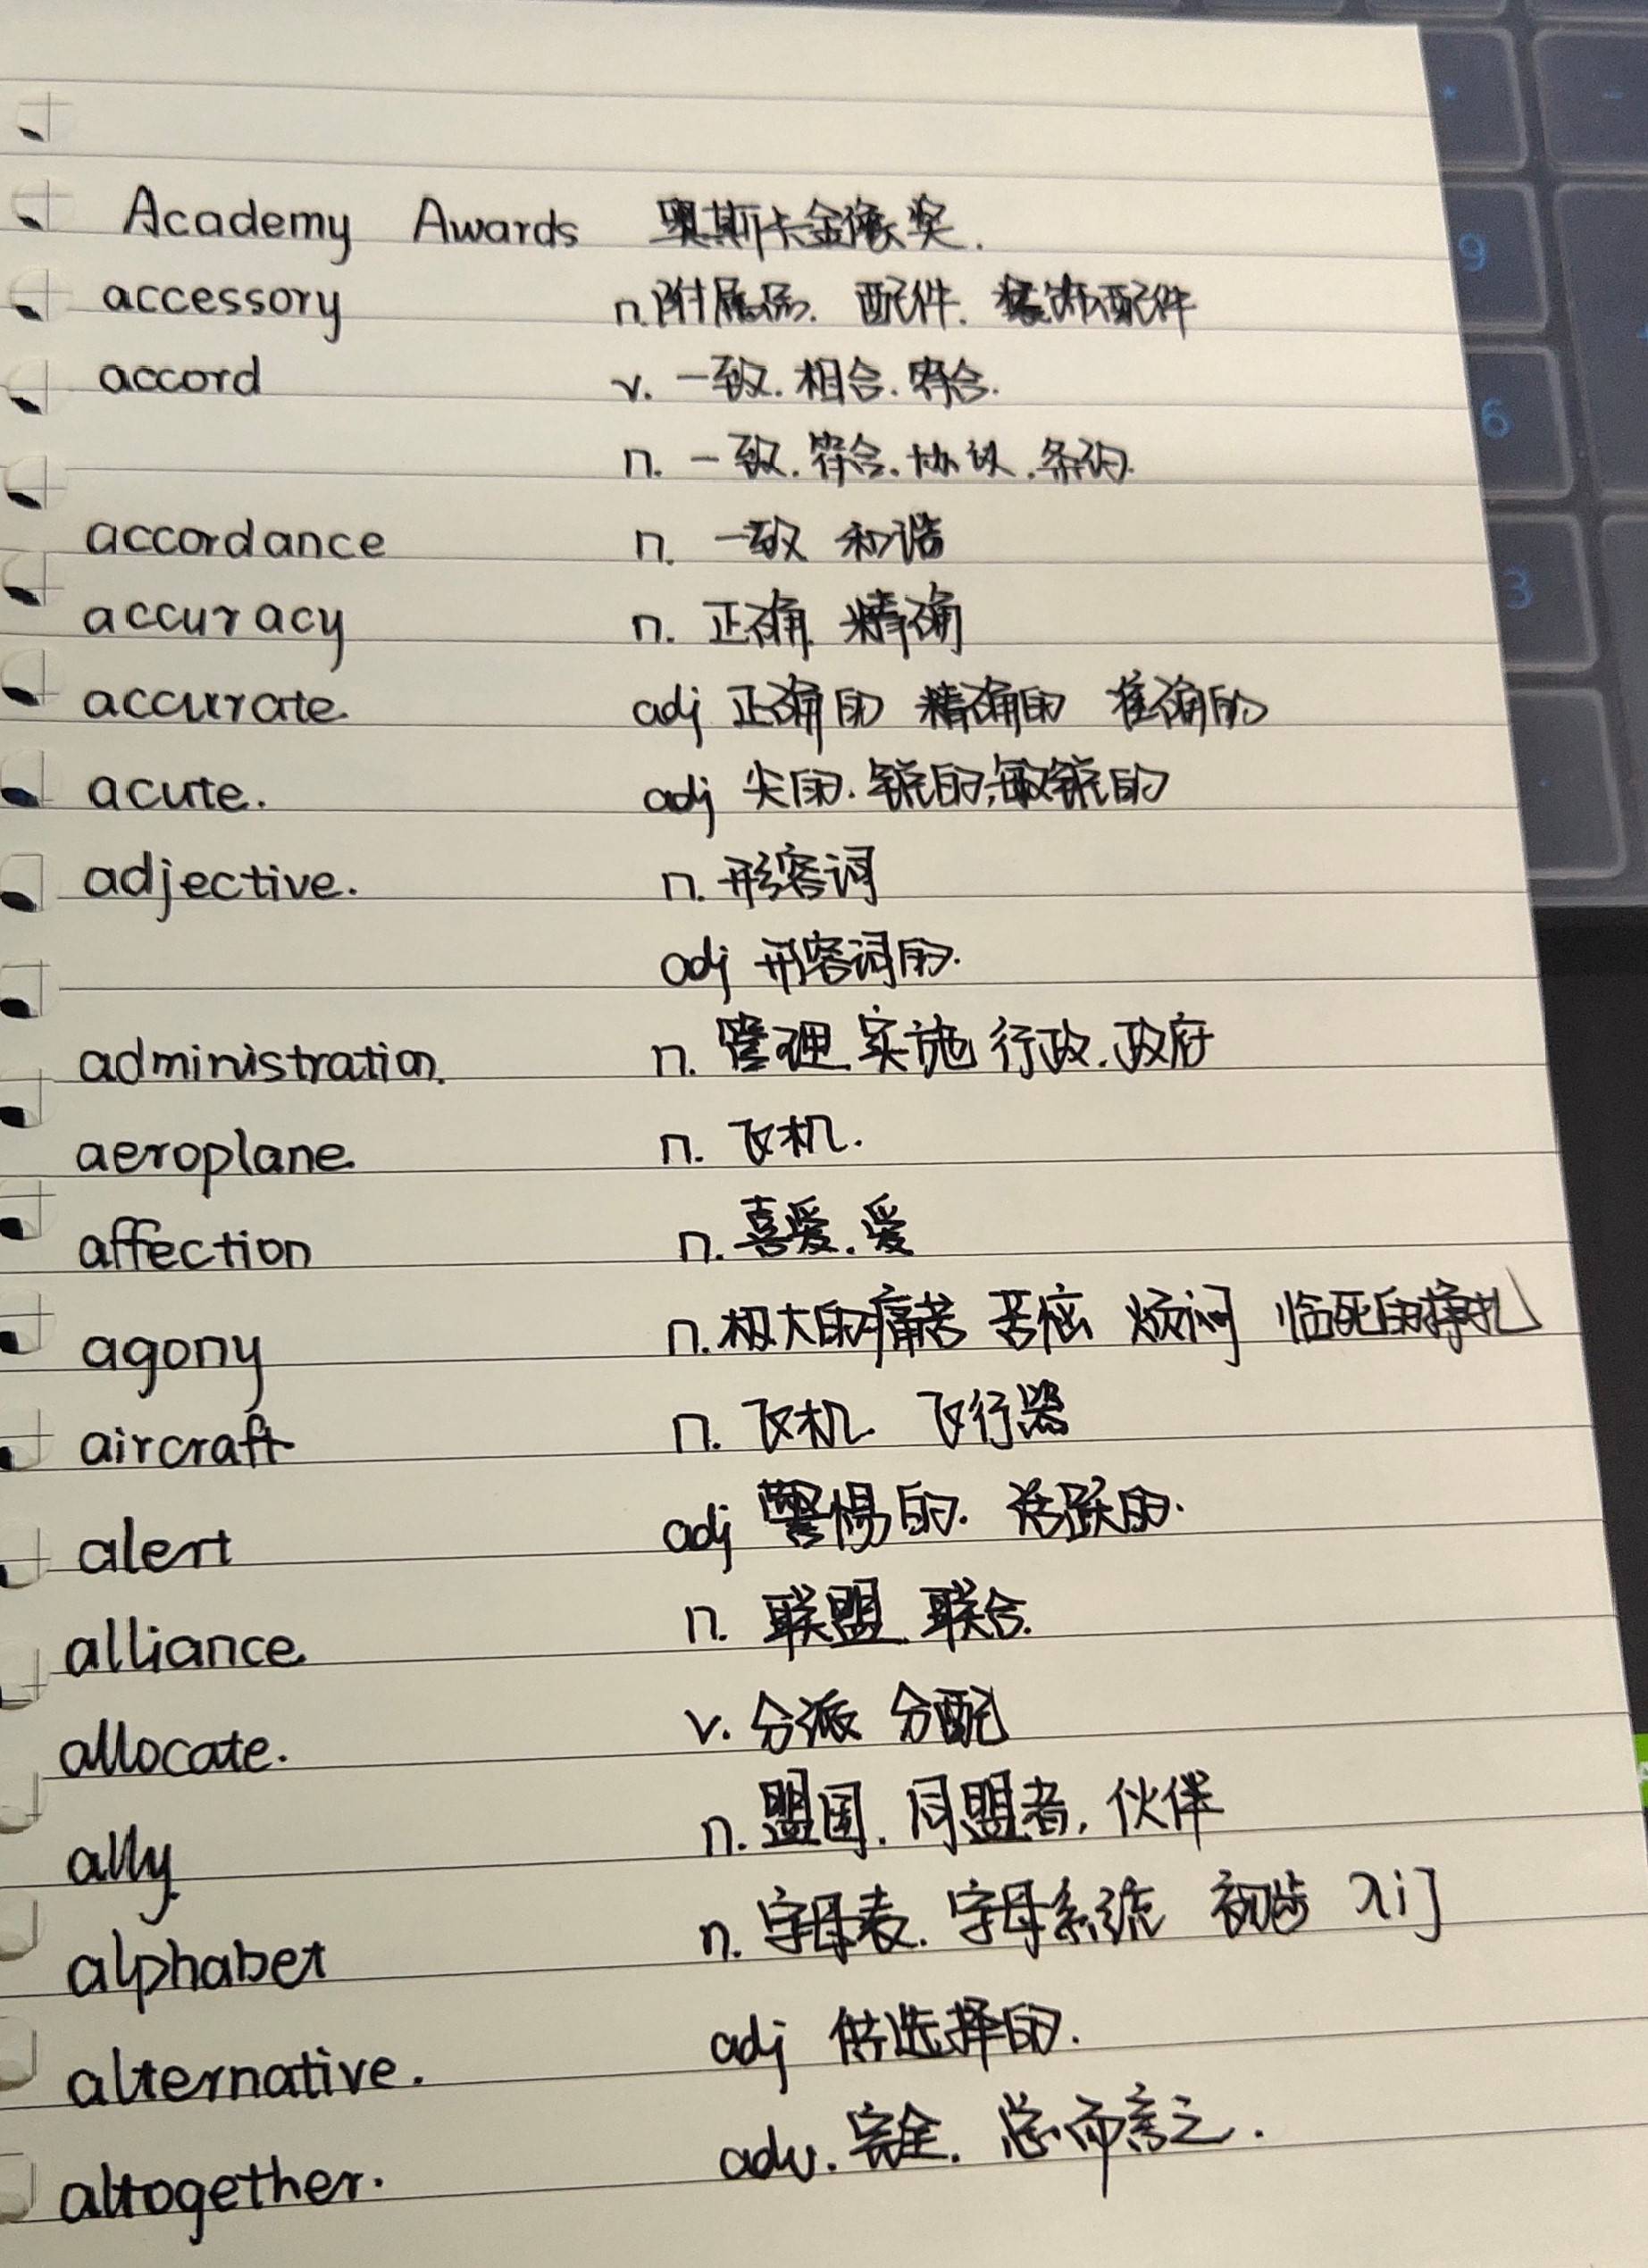 Academy Awards 奥斯卡金像奖.
accessory n.附属品. 配件. 装饰配件
accord v. 一致. 相合. 符合.
n. 一致. 符合. 协议. 条约.
accordance n. 一致 和谐
accuracy n. 正确. 精确
accurate. adj 正确的 精确的 准确的
acute. adj 尖的. 锐的, 敏锐的
adjective. n. 形容词
adj 形容词的.
administration. n. 管理. 实施 行政. 政府
aeroplane. n. 飞机.
affection n. 喜爱. 爱
agony n. 极大的痛苦 苦恼 烦闷 临死的挣扎
aircraft n. 飞机. 飞行器
alert adj 警惕的. 活跃的.
alliance. n. 联盟. 联合.
allocate. v. 分派 分配
ally. n. 盟国. 同盟者, 伙伴
alphabet n. 字母表. 字母系统 初步 入门
alternative. adj 供选择的.
altogether. adv. 完全. 总而言之.
* - 9 6 3